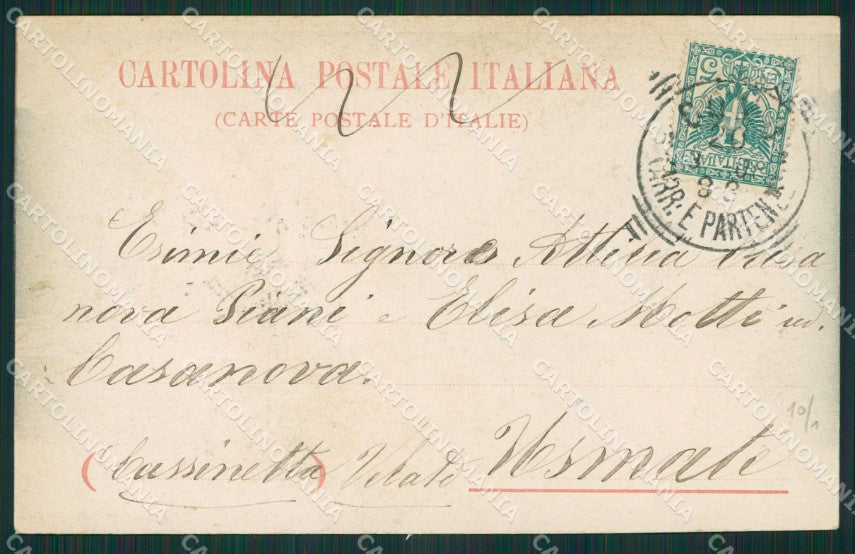 CARTOLINA POSTALE ITALIANA
(CARTE POSTALE D'ITALIE)
ARR. E PARTENZE
Esimie Signore Attilia Casa
nova Piani e Elisa Motti ved.
Casanova.
(Cassinetta) Velate Usmate
10/1
CARTOLINOMANIA